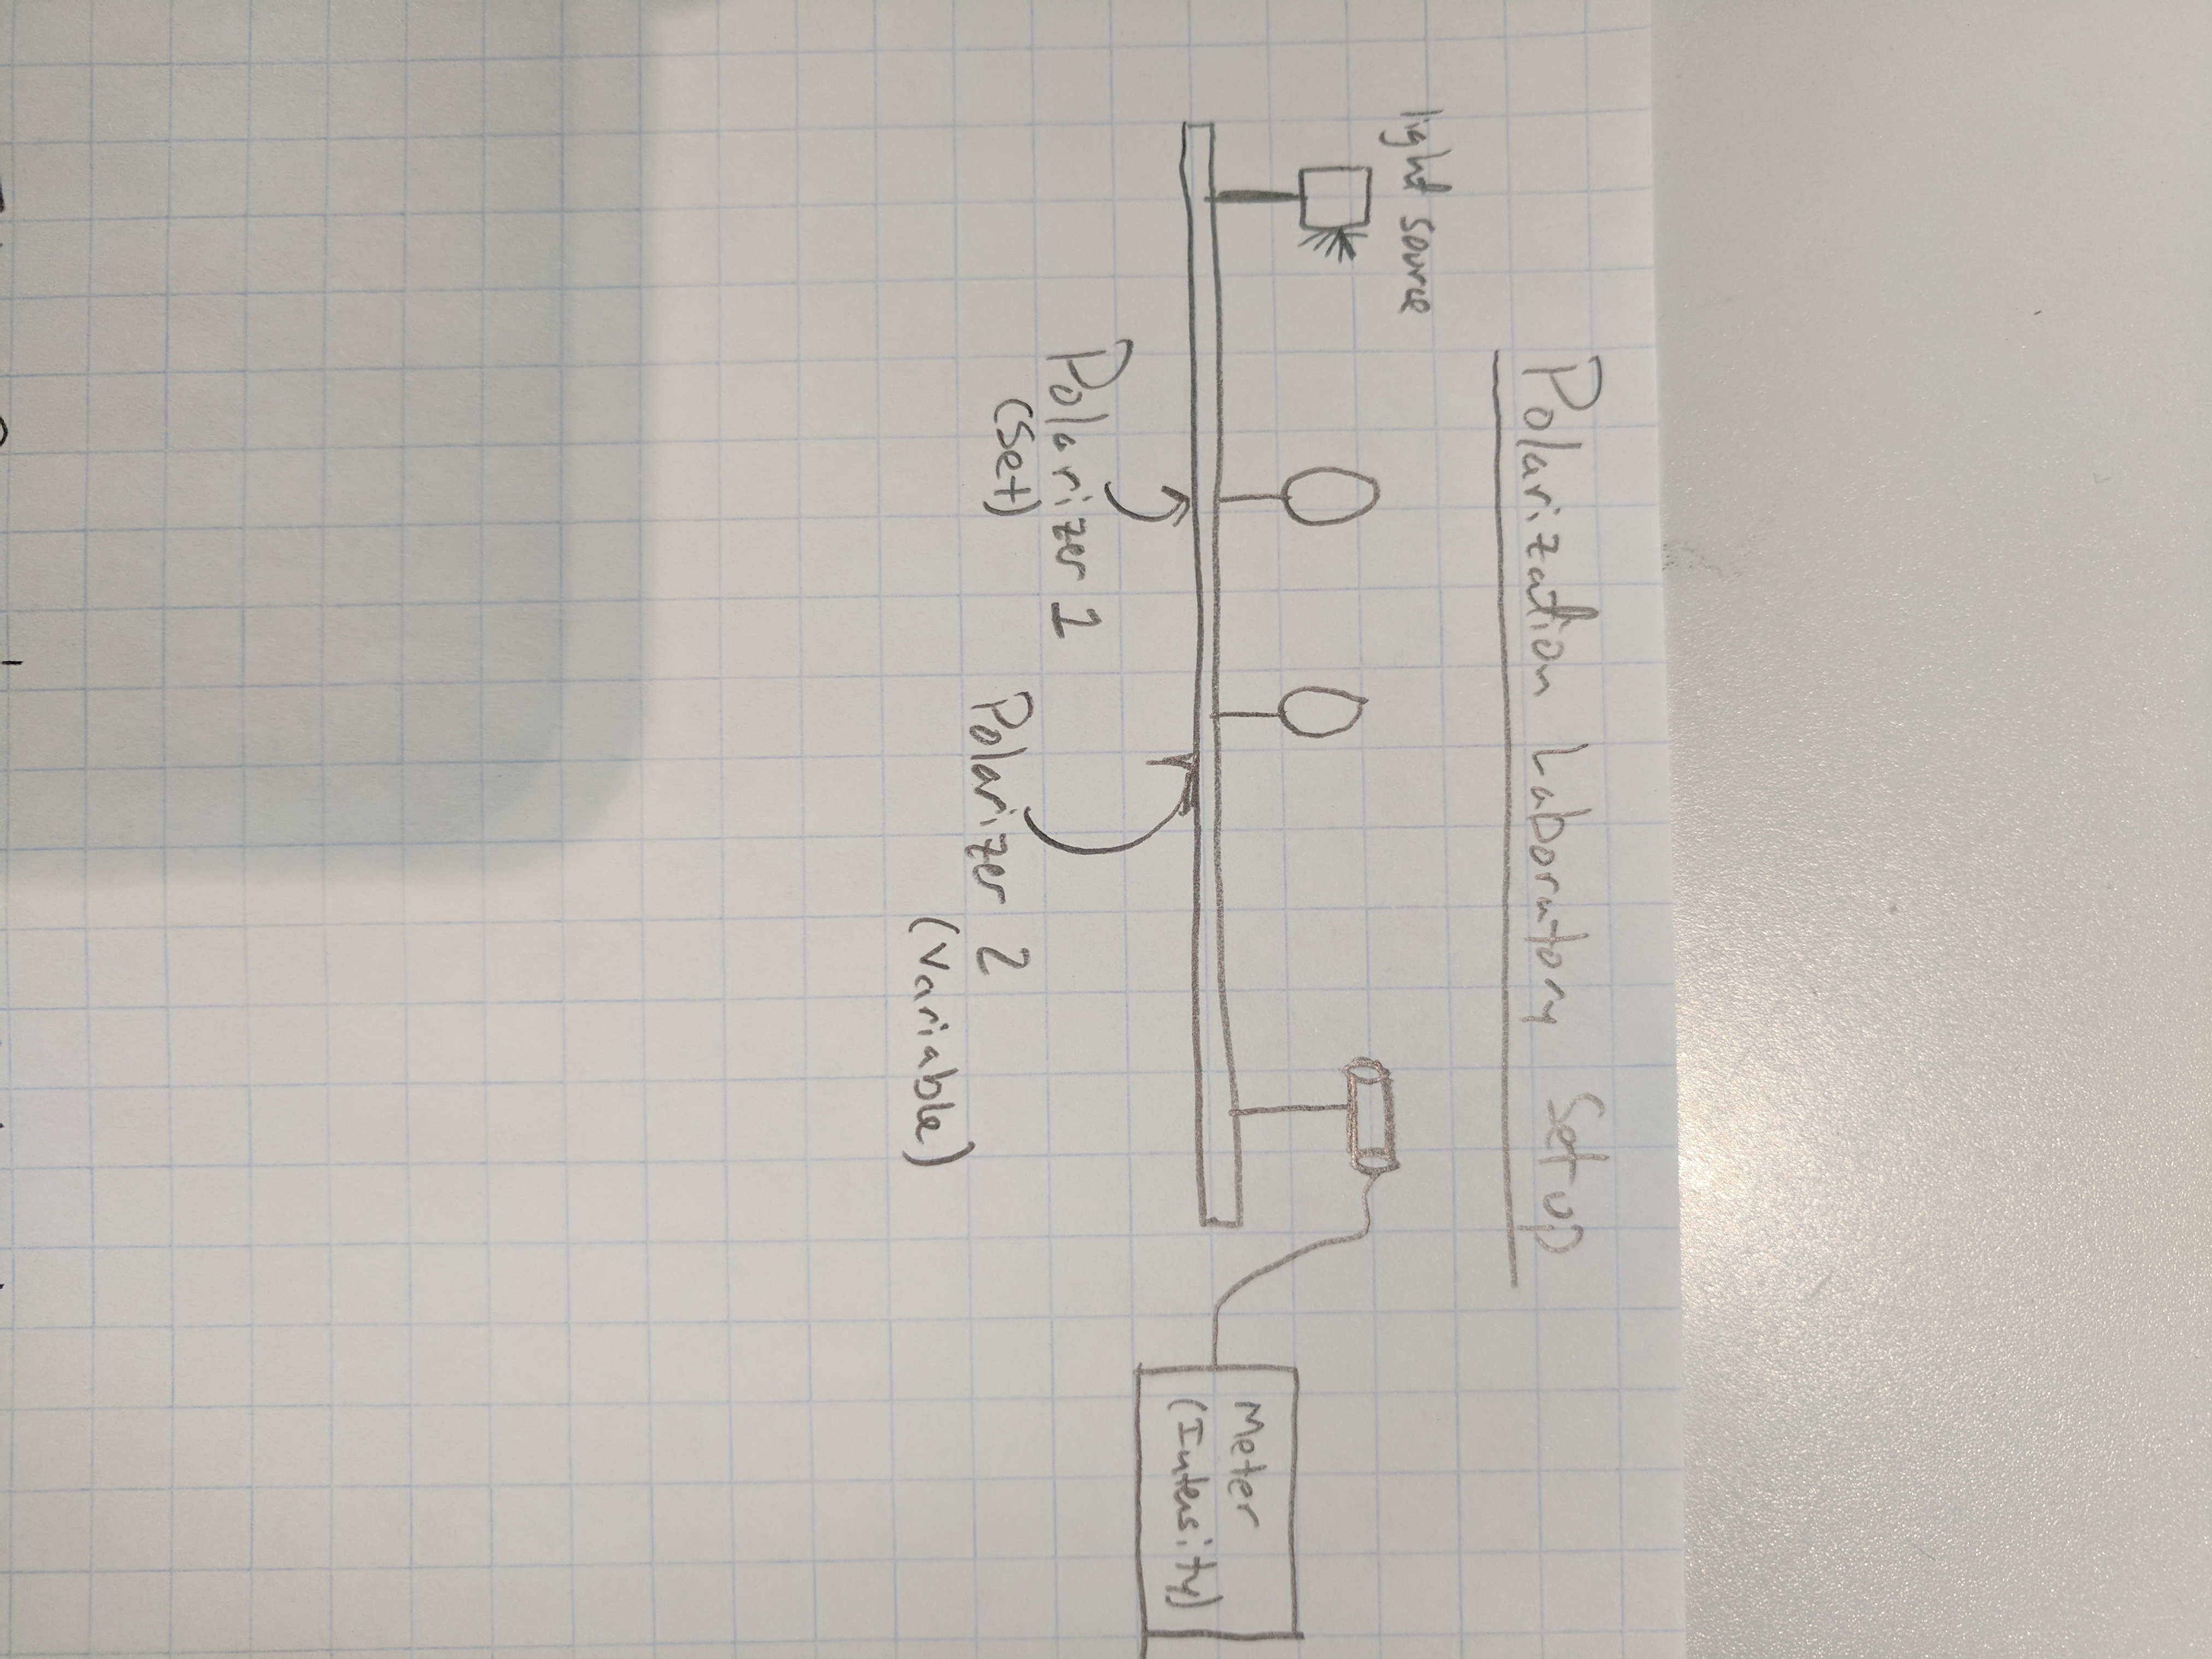 Polarization Laboratory Setup
light source
Polarizer 1
(Set)
Polarizer 2
(Variable)
Meter
(Intensity)